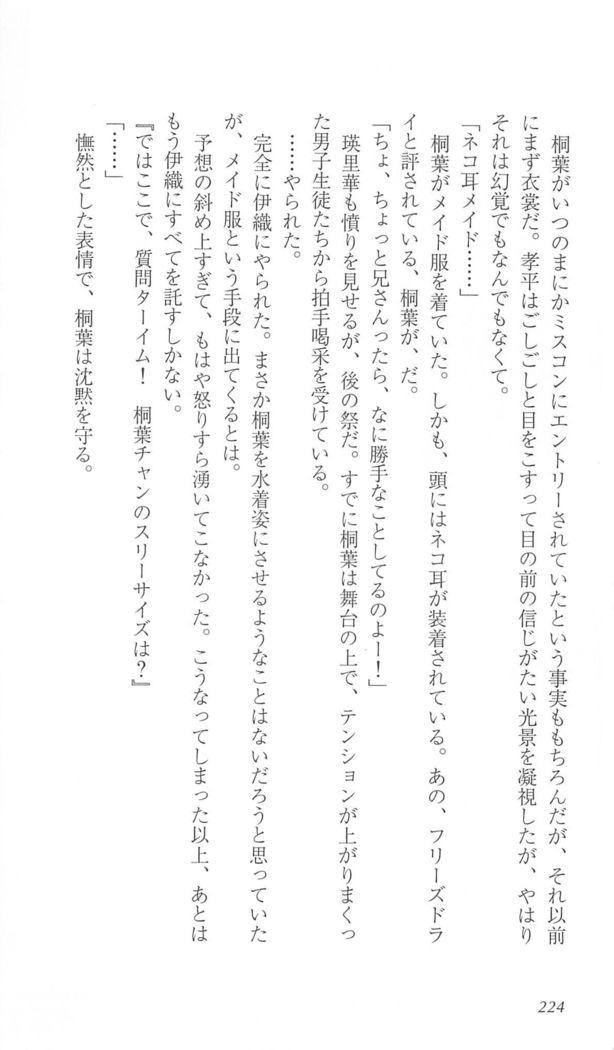 桐葉がいつのまにかミスコンにエントリーされていたという事実ももちろんだが、それ以前
にまず衣裳だ。孝平はごしごしと目をこすって目の前の信じがたい光景を凝視したが、やはり
それは幻覚でもなんでもなくて。
「ネコ耳メイド……」
　桐葉がメイド服を着ていた。しかも、頭にはネコ耳が装着されている。あの、フリーズドラ
イと評されている、桐葉が、だ。
「ちょ、ちょっと兄さんったら、なに勝手なことしてるのよー！」
　瑛里華も憤りを見せるが、後の祭だ。すでに桐葉は舞台の上で、テンションが上がりまくっ
た男子生徒たちから拍手喝采を受けている。
　……やられた。
　完全に伊織にやられた。まさか桐葉を水着姿にさせるようなことはないだろうと思っていた
が、メイド服という手段に出てくるとは。
　予想の斜め上すぎて、もはや怒りすら湧いてこなかった。こうなってしまった以上、あとは
もう伊織にすべてを託すしかない。
『ではここで、質問ターイム！　桐葉チャンのスリーサイズは？』
「……」
　憮然とした表情で、桐葉は沈黙を守る。
224